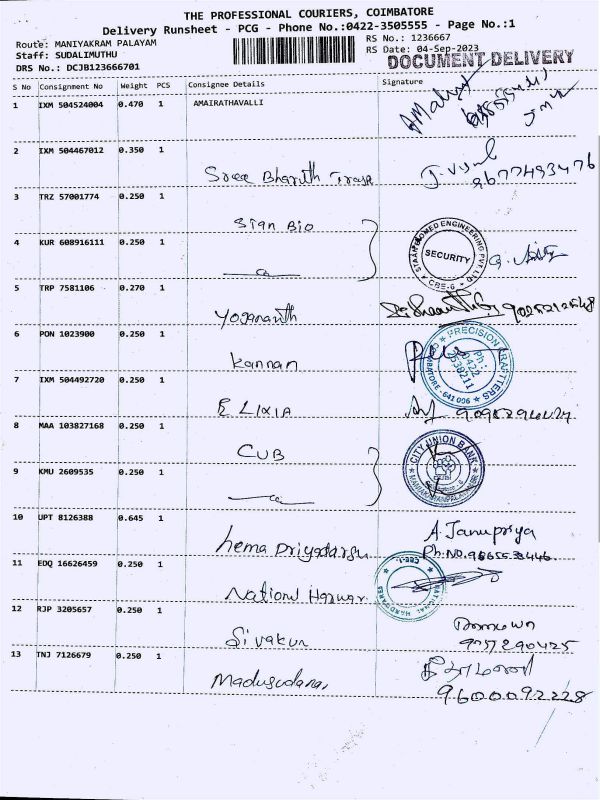 THE PROFESSIONAL COURIERS, COIMBATORE
Delivery Runsheet - PCG - Phone No.:0422-3505555 - Page No.:1
Route: MANIYAKRAM PALAYAM
RS No.: 1236667
Staff: SUDALIMUTHU
RS Date: 04-Sep-2023
DRS No.: DCJB123666701
DOCUMENT DELIVERY
S No Consignment No Weight PCS Consignee Details Signature
1 IXM 504524004 0.470 1 AMAIRATHAVALLI
2 IXM 504467012 0.350 1
Sree Bharath
9677493476
3 TRZ 57001774 0.250 1
Stan Bio
4 KUR 608916111 0.250 1
ENGINEERING PVT LTD
SECURITY
CBE-6
5 TRP 7581106 0.270 1
Yogananth
6 PON 1023900 0.250 1
Kannan
PRECISION KRAFTERS
Ph:
0422
COIMBATORE - 641 006
7 IXM 504492720 0.250 1
ELIXIA
8 MAA 103827168 0.250 1
CUB
CITY UNION BANK
9 KMU 2609535 0.250 1
10 UPT 8126388 0.645 1
hema Priyadarsu
A. Janupriya
Ph.No.
11 EDQ 16626459 0.250 1
National
NATIONAL HARDWARES
CBE-1
12 RJP 3205657 0.250 1
Sivakun
9757290425
13 TNJ 7126679 0.250 1
Madusudana,
9600092228